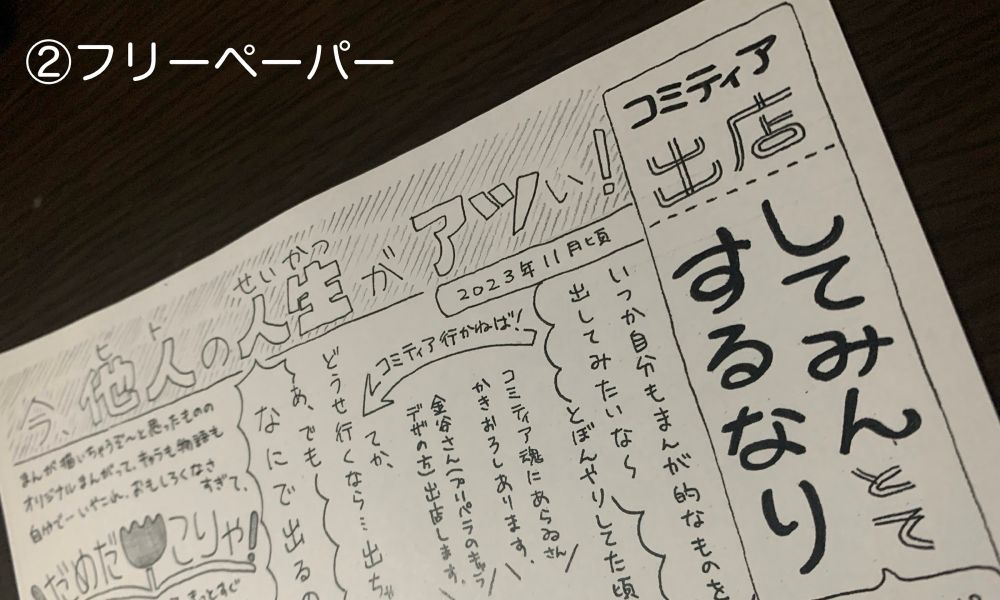 ②フリーペーパー
コミティア
出店
してみんとて
するなり
今、他人の人生がアツい!
ひと
せいかつ
2023年11月頃
いつか自分もまんが的なものを
出してみたいな〜
とぼんやりしてた頃
コミティア行かねば!
コミティア魂にあらゐさん
かきおろしあります。
金谷さん(プリパラのキャラ
デザの方)出店します。
てか、
どうせ行くなら…出ちゃ
あ、でも
なにで出るの
まんが描いちゃうぞ〜と思ったものの
オリジナルまんがって、キャラも物語も
自分でー いやこれ、おもしろくなさ
すぎて、
だめだ こりゃ!